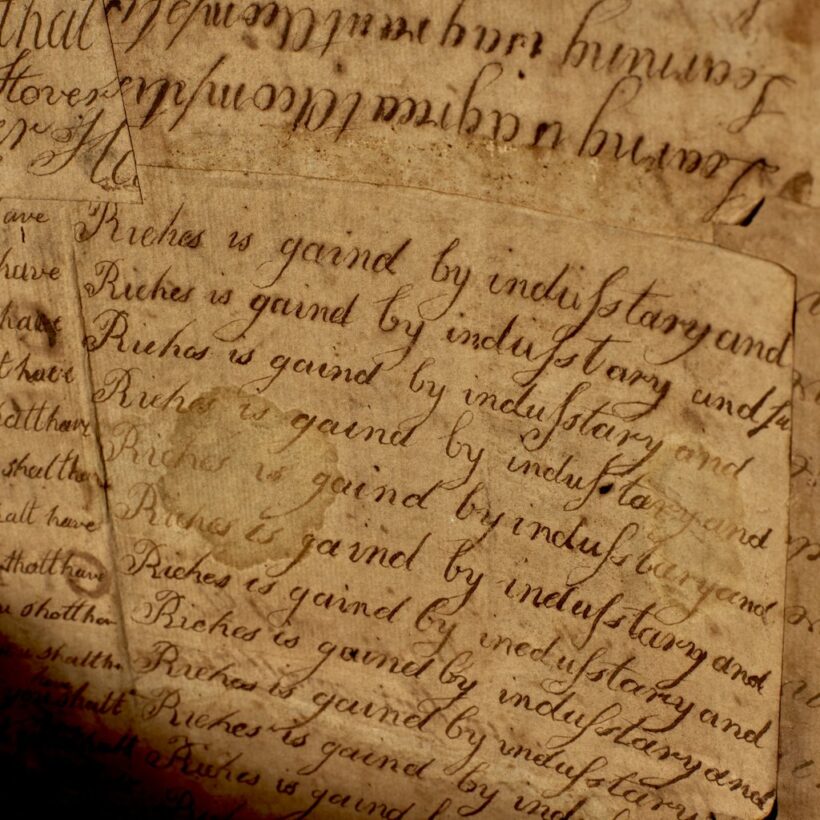 that
Hovers
er Ho
Learning is a great Accomplis
Learing is a great Accomplis
ave
have
have
t have
alt have
shalt have
alt have
shalt have
u shalt ha
u shalth
you shalt
shalt
Riches is gaind by indusstary and
Riches is gaind by indusstary and fu
Riches is gaind by indusstary and
Riches is gaind by indusstary and
Riches is gaind by indusstary and
Riches is gaind by indusstary and
Riches is gaind by inedusstary and
Riches is gaind by indusstary and
Riches is gaind by indusstary and
Riches is gaind by indusstary
Riches is gaind b